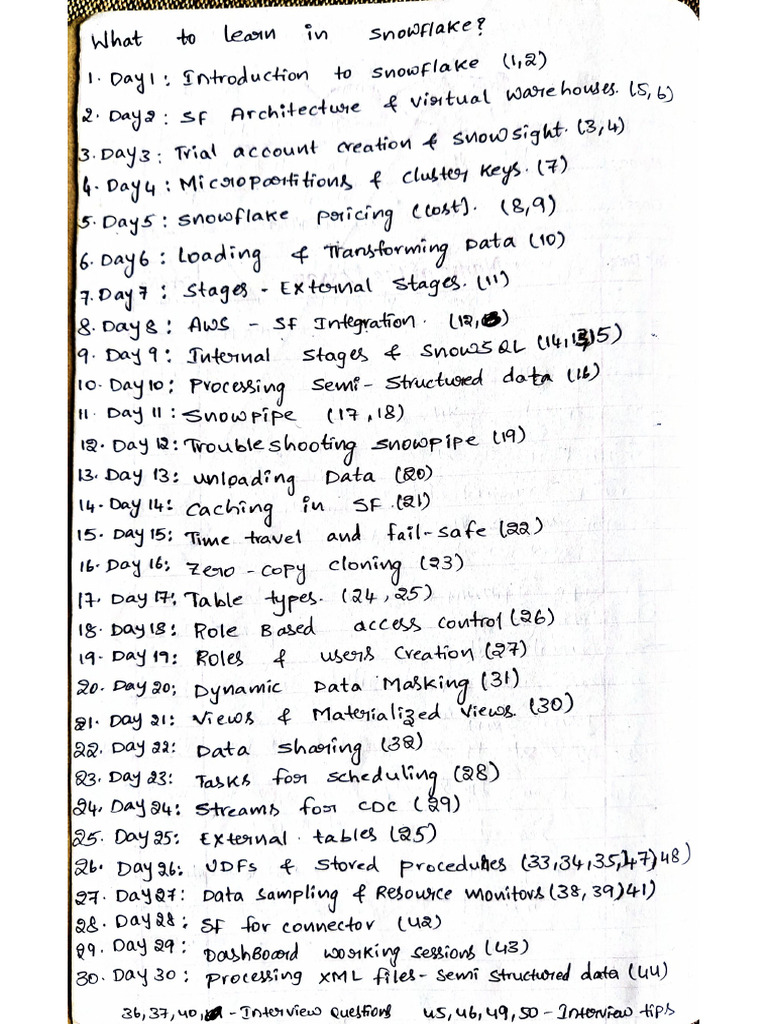 What to learn in snowflake?
1. Day1 : Introduction to snowflake (1,2)
2. Day2 : SF Architecture & virtual warehouses. (5,6)
3. Day3 : Trial account creation & snowsight. (3,4)
4. Day4 : Micropartitions & cluster keys. (7)
5. Day5 : snowflake pricing (cost). (8,9)
6. Day6 : Loading & Transforming Data (10)
7. Day7 : Stages - External Stages. (11)
8. Day8 : AWS - SF Integration. (12,)
9. Day 9 : Internal Stages & SnowSQL (14,13,15)
10. Day10 : Processing semi-structured data (16)
11. Day 11 : Snowpipe (17,18)
12. Day 12: Troubleshooting snowpipe (19)
13. Day 13: unloading Data (20)
14. Day 14: Caching in SF. (21)
15. Day 15: Time travel and fail-safe (22)
16. Day 16: Zero-copy cloning (23)
17. Day 17: Table types. (24,25)
18. Day18: Role Based access control (26)
19. Day 19: Roles & users Creation (27)
20. Day 20: Dynamic Data Masking (31)
21. Day 21: Views & Materialized Views. (30)
22. Day 22: Data Sharing (32)
23. Day 23: Tasks for scheduling (28)
24. Day 24: Streams for CDC (29)
25. Day 25: External tables (25)
26. Day 26: UDFs & Stored procedures (33,34,35,47,48)
27. Day 27: Data sampling & Resource monitors (38,39,41)
28. Day 28: SF for connector (42)
29. Day 29: DashBoard working sessions (43)
30. Day 30 : Processing XML files - semi structured data (44)
36,37,40, - Interview questions 45,46,49,50 - Interview tips